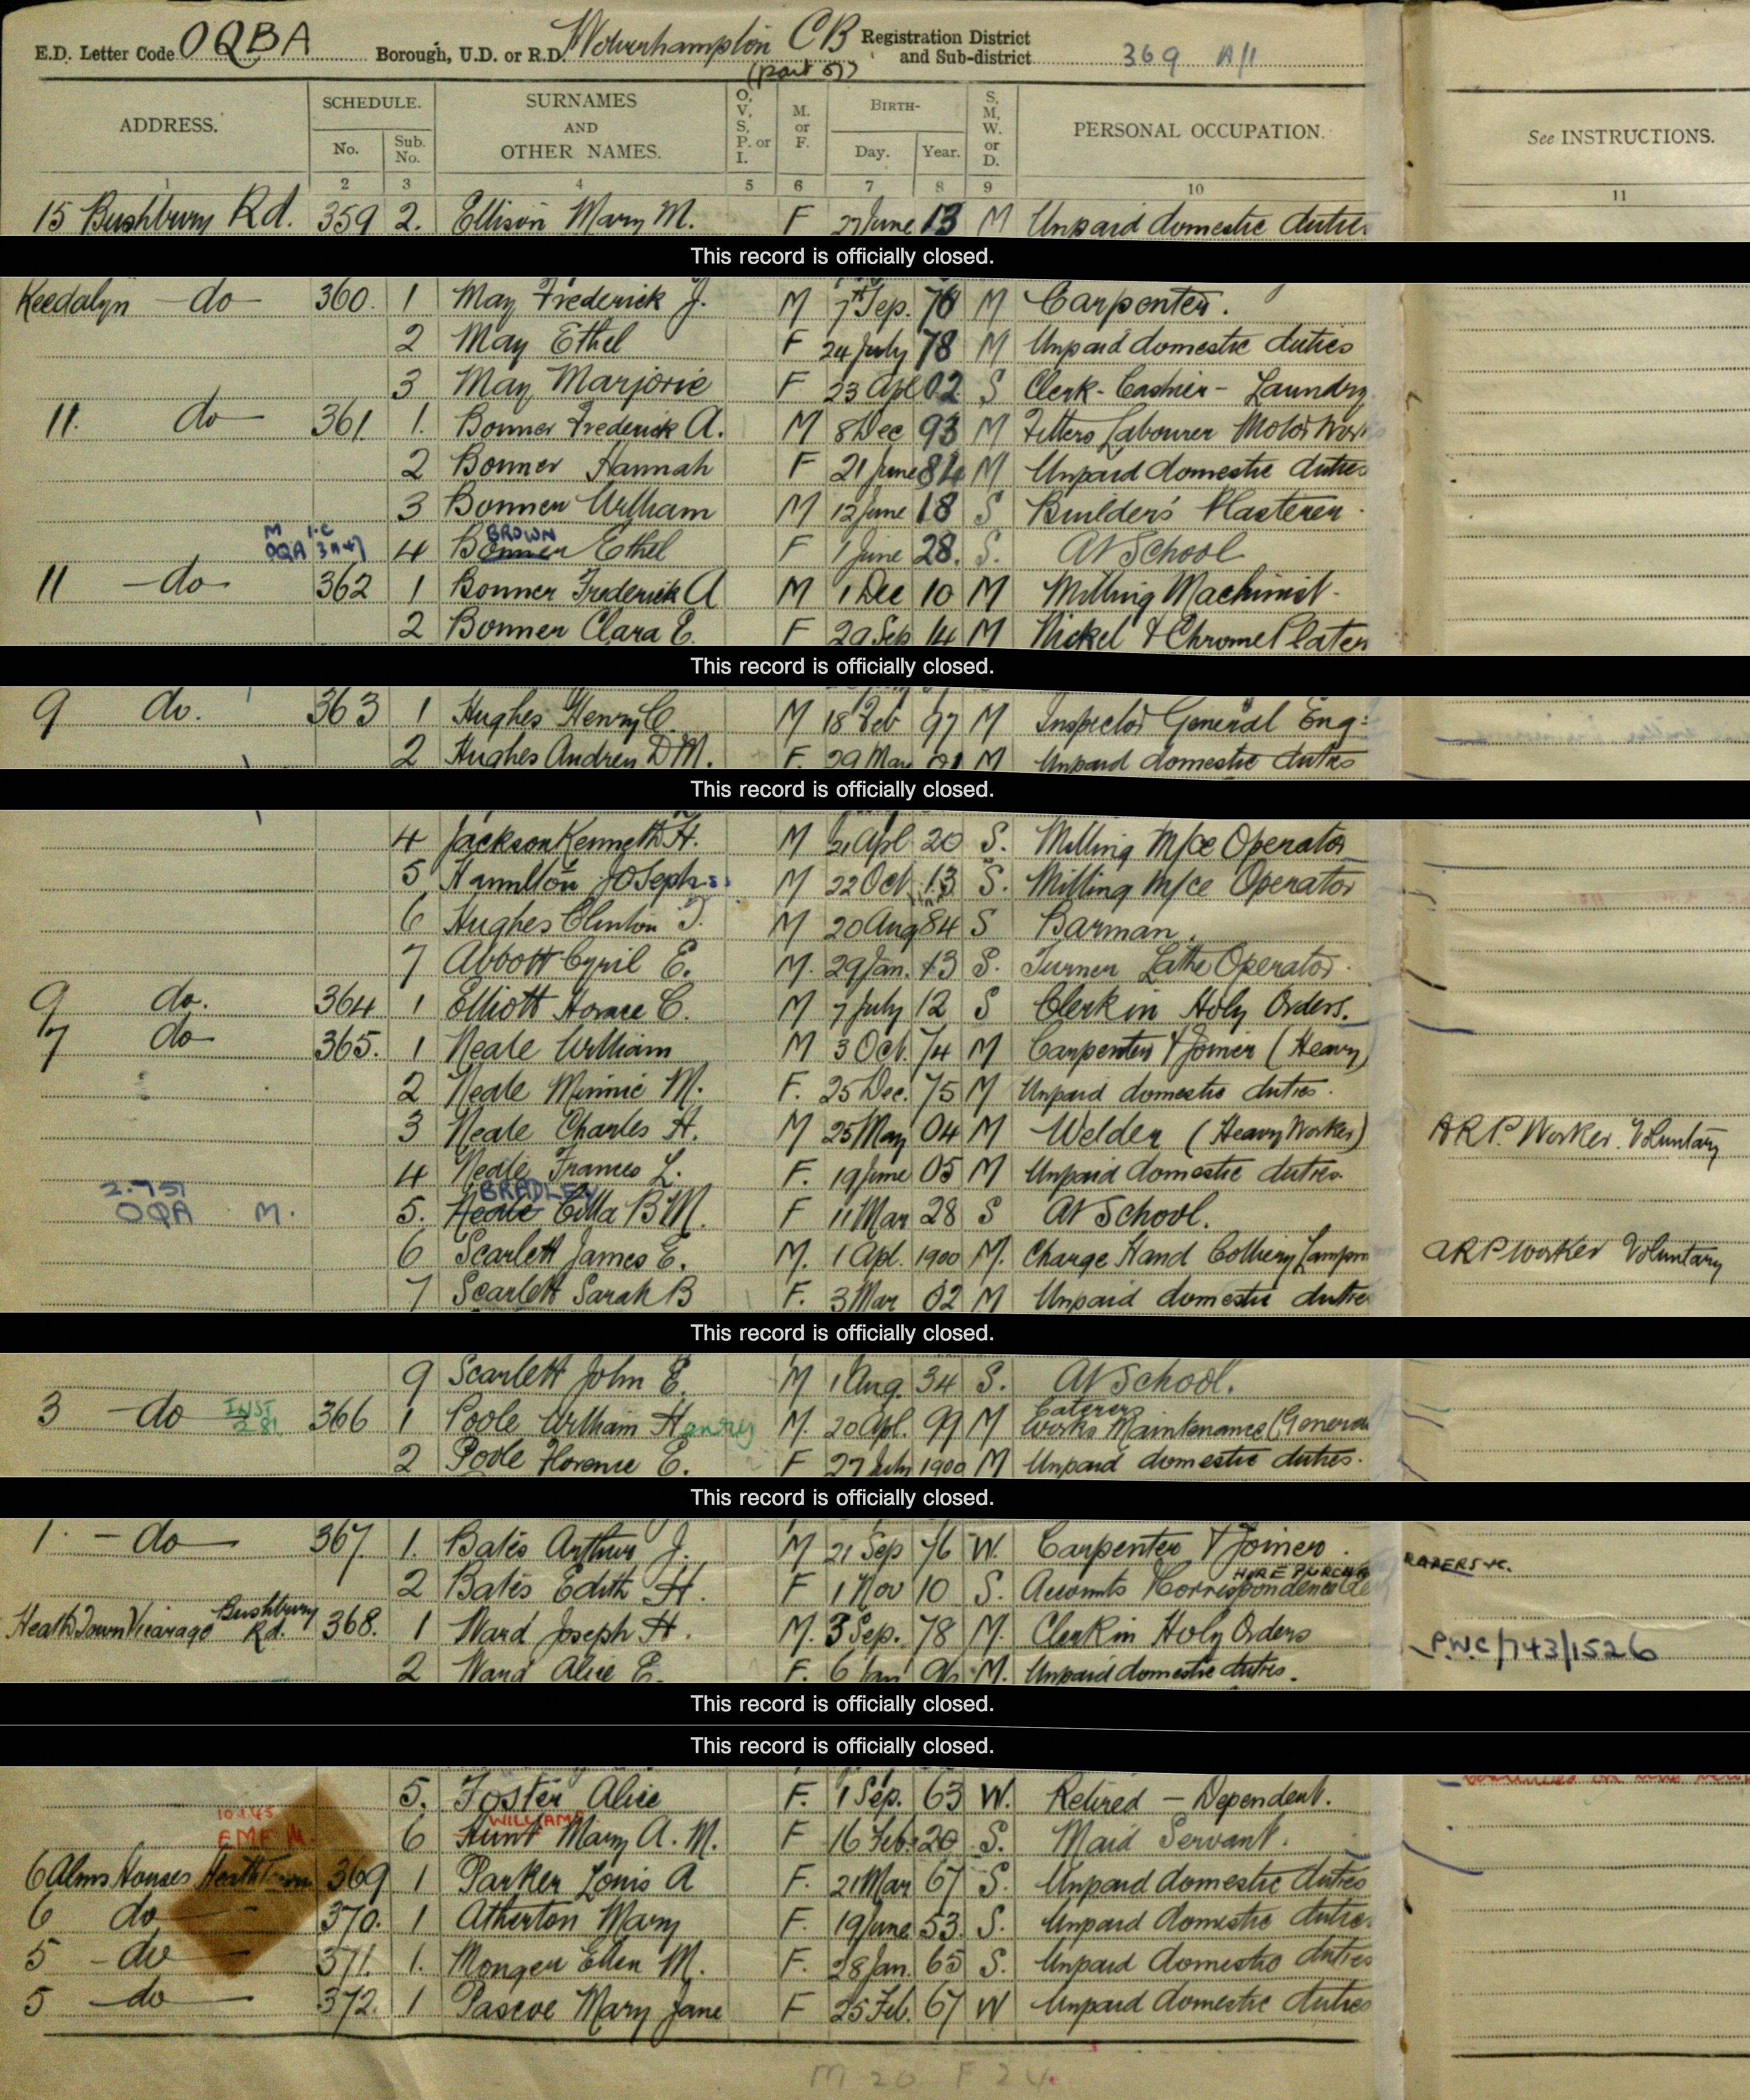 E.D. Letter Code OQBA Borough, U.D. or R.D. Wolverhampton CB (part of) Registration District and Sub-district 369 A/1
ADDRESS. SCHEDULE. No. Sub. No. SURNAMES AND OTHER NAMES. O, V, S, P. or I. M. or F. BIRTH- Day. Year. S, M, W. or D. PERSONAL OCCUPATION. See INSTRUCTIONS.
1 2 3 4 5 6 7 8 9 10 11
15 Bushbury Rd. 359 2. Ellison Mary M. F 27 June 13 M Unpaid domestic duties
This record is officially closed.
Keedalyn - do - 360. 1 May Frederick J. M 7 Sep. 76 M Carpenter.
2 May Ethel F 24 July 78 M Unpaid domestic duties
3 May Marjorie F 23 Apl 02 S Clerk - Cashier - Laundry
11. do - 361. 1. Bonner Frederick A. M 8 Dec 93 M Fitters Labourer Motor Works
2 Bonner Hannah F 21 June 84 M Unpaid domestic duties
3 Bonner William M 12 June 18 S Builder's Plasterer.
M OQA 4 Bonner BROWN Ethel F 1 June 28. S. At School
11 - do - 362 1 Bonner Frederick A M 1 Dec 10 M Milling Machinist -
2 Bonner Clara E. F 29 Sep 14 M Nickel & Chrome Plater
This record is officially closed.
9 do. 363 1 Hughes Henry C. M 18 Feb 97 M Inspector General Eng:
2 Hughes Andren D M. F. 29 Mar 01 M Unpaid domestic duties
This record is officially closed.
4 Jackson Kenneth H. M 21 Apl 20 S. Milling M/ce Operator
5 Hamilton Joseph M 22 Oct 13 S. Milling M/ce Operator
6 Hughes Clinton J. M 20 Aug 84 S Barman.
7 Abbott Cyril E. M. 29 Jan. 13 S. Turner Lathe Operator.
9 do. 364 1 Elliott Horace C. M 7 July 12 S Clerk in Holy Orders.
7 do 365. 1 Neale William M 3 Oct. 74 M Carpenter & Joiner (Heavy)
2 Neale Minnie M. F. 25 Dec. 75 M Unpaid domestic duties.
3 Neale Charles H. M 25 May 04 M Welder (Heavy Worker) A.R.P. Worker. Voluntary
4 Neale Frances L. F. 19 June 05 M Unpaid domestic duties
2.7 51 OQA M. 5. Neale BRADLEY Cilla B M. F 11 Mar 28 S At School.
6 Scarlett James E. M. 1 Apl. 1900 M. Charge Hand Colliery Lampm ARP Worker Voluntary
7 Scarlett Sarah B F. 3 Mar 02 M Unpaid domestic duties
This record is officially closed.
9 Scarlett John E. M 1 Aug. 34 S. At School.
3 - do INST 2 81. 366 1 Poole William Henry M. 20 Apl. 99 M Caterers Works Maintenance (General
2 Poole Florence E. F 27 July 1900 M Unpaid domestic duties.
This record is officially closed.
1. - do - 367. 1. Bates Arthur J. M 21 Sep 76 W. Carpenter & Joiner.
2 Bates Edith H. F 1 Nov 10 S. Accounts Correspondence HIRE PURCHA
Heath Town Vicarage Bushbury Rd. 368. 1 Ward Joseph H. M. 3 Sep. 78 M. Clerk in Holy Orders P.W.C/743/1526
2 Ward Alice E. F. 6 Jan M. Unpaid domestic duties.
This record is officially closed.
This record is officially closed.
5. Foster Alice F. 1 Sep. 63 W. Retired - Dependent.
10.1.45 EMF M. 6 Hunt WILLIAMS Mary A. M. F 16 Feb. 20 S. Maid Servant.
6 Alms Houses Heath Town 369 1 Parker Louis A F. 21 Mar 67 S. Unpaid domestic duties
6 do - 370. 1 Atherton Mary F. 19 June 53. S. Unpaid domestic duties.
5 - do - 371. 1. Monger Ellen M. F. 28 Jan. 65 S. Unpaid domestic duties
5 - do - 372. 1 Pascoe Mary Jane F 25 Feb. 67 W Unpaid domestic duties
M 20 F 24.